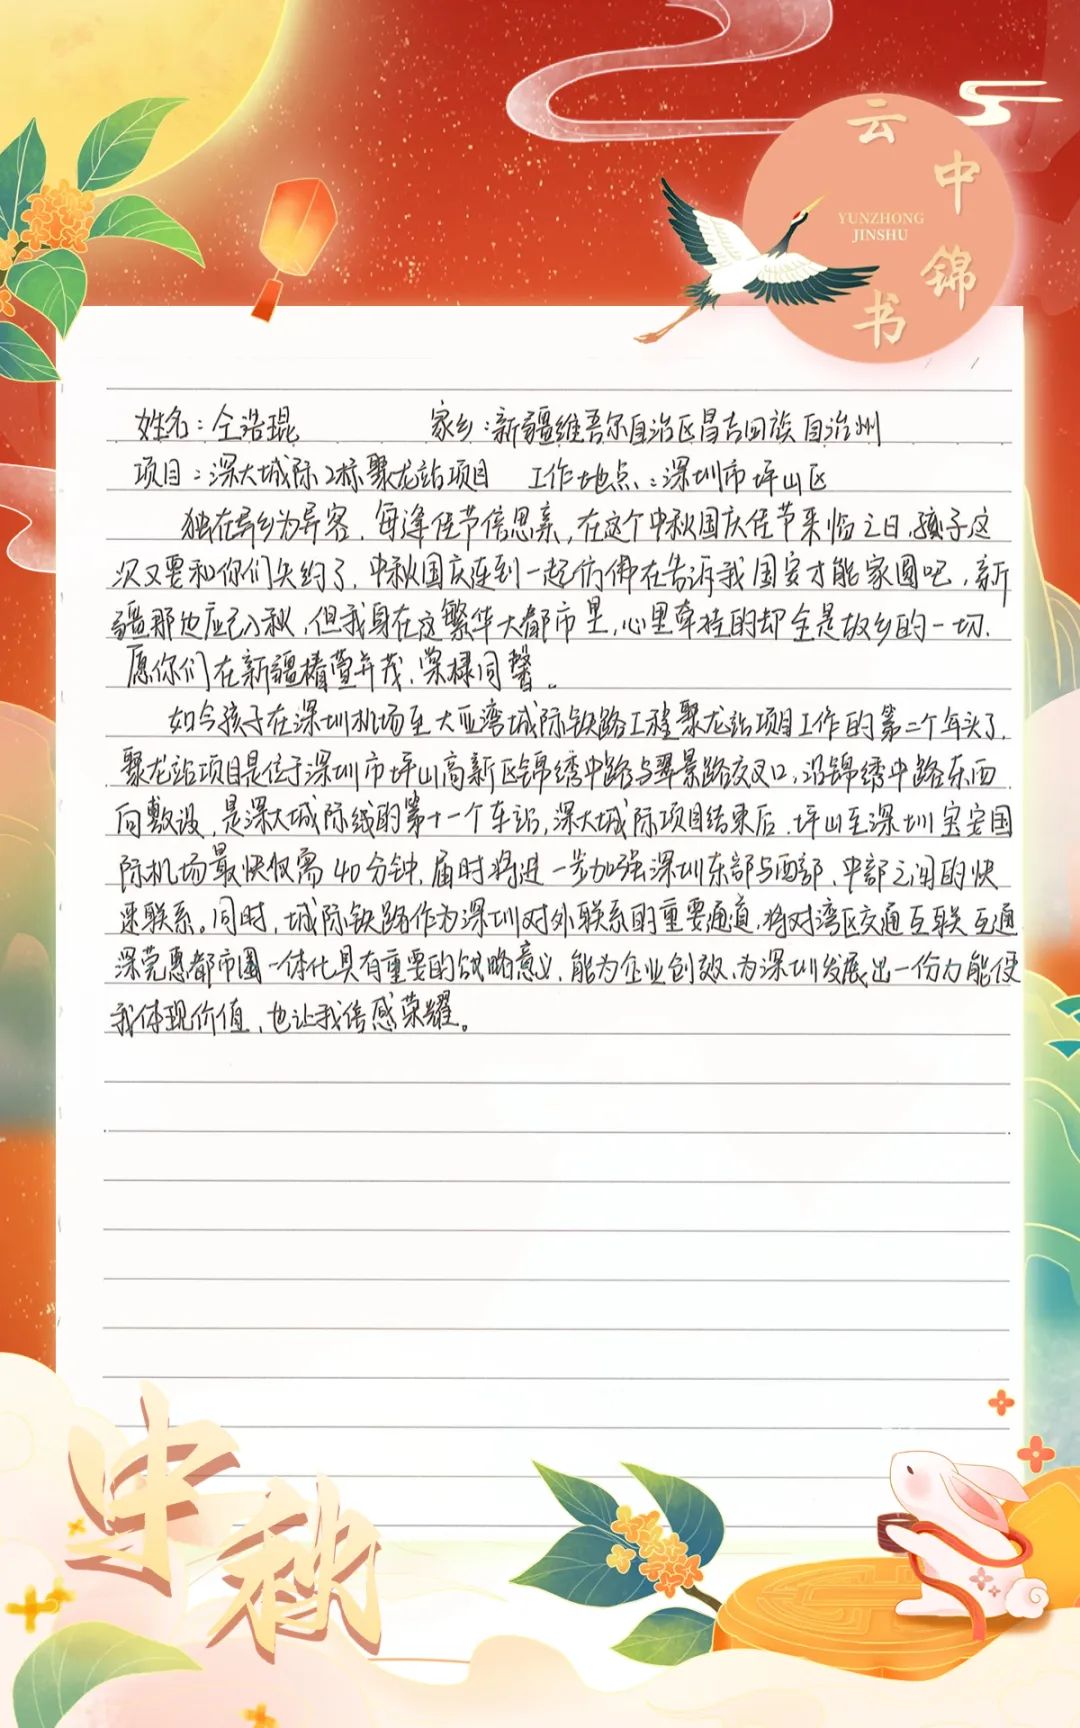 云中锦书
YUNZHONG
JINSHU
姓名：仝浩琨 家乡：新疆维吾尔自治区昌吉回族自治州
项目：深大城际2标聚龙站项目 工作地点：深圳市坪山区
独在异乡为异客，每逢佳节倍思亲，在这个中秋国庆佳节来临之日，孩子这
次又要和你们失约了，中秋国庆连到一起仿佛在告诉我国安才能家圆吧，新
疆那边应已入秋，但我身在这繁华大都市里，心里牵挂的却全是故乡的一切，
愿你们在新疆椿萱并茂，棠棣同馨。
如今孩子在深圳机场至大亚湾城际铁路工程聚龙站项目工作的第二个年头了，
聚龙站项目是位于深圳市坪山高新区锦绣中路与翠景路交叉口，沿锦绣中路东西
向敷设，是深大城际线的第十一个车站，深大城际项目结束后，坪山至深圳宝安国
际机场最快仅需40分钟，届时将进一步加强深圳东部与西部、中部之间的快
速联系。同时，城际铁路作为深圳对外联系的重要通道，将对湾区交通互联互通
深莞惠都市圈一体化具有重要的战略意义，能为企业创效、为深圳发展出一份力能使
我体现价值，也让我倍感荣耀。
中秋